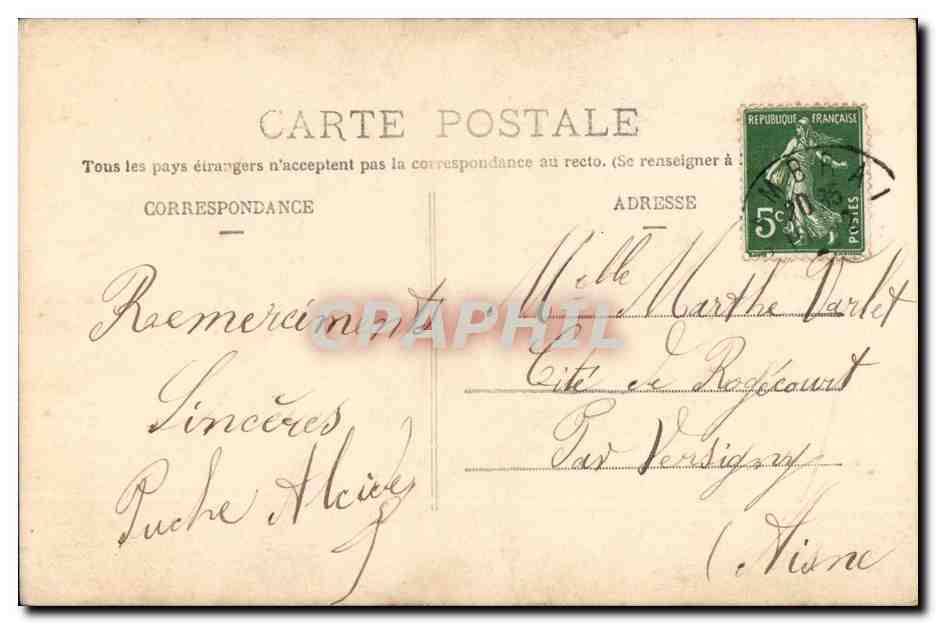 CARTE POSTALE
Tous les pays étrangers n'acceptent pas la correspondance au recto. (Se renseigner à
CORRESPONDANCE
ADRESSE
REPUBLIQUE FRANÇAISE
5c
POSTES
Remerciments
Sincères
Puche Alcide
Melle Marthe Varlet
Cité de Rogécourt
Par Versigny
(Aisne
CPAPHIL